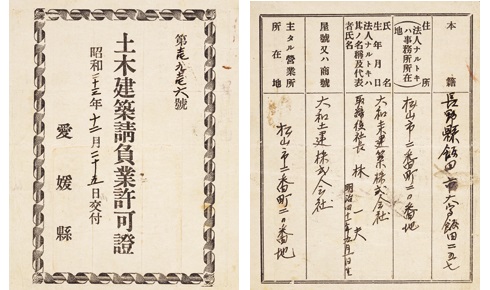 第壱九壱六號
土木建築請負業許可證
昭和二十三年十二月二十五日交付
愛媛縣
本籍
長野縣飯田市大字飯田二五七
住所
(法人ナルトキハ事務所所在地)
松山市二番町二〇番地
氏名
生年月日
法人ナルトキハ其ノ名稱及代表者氏名
大和土建築株式会社
取締役社長 林 一夫
明治四十二年九月一日生
屋號又ハ商號
大和土建株式会社
主タル營業所所在地
松山市二番町二〇番地